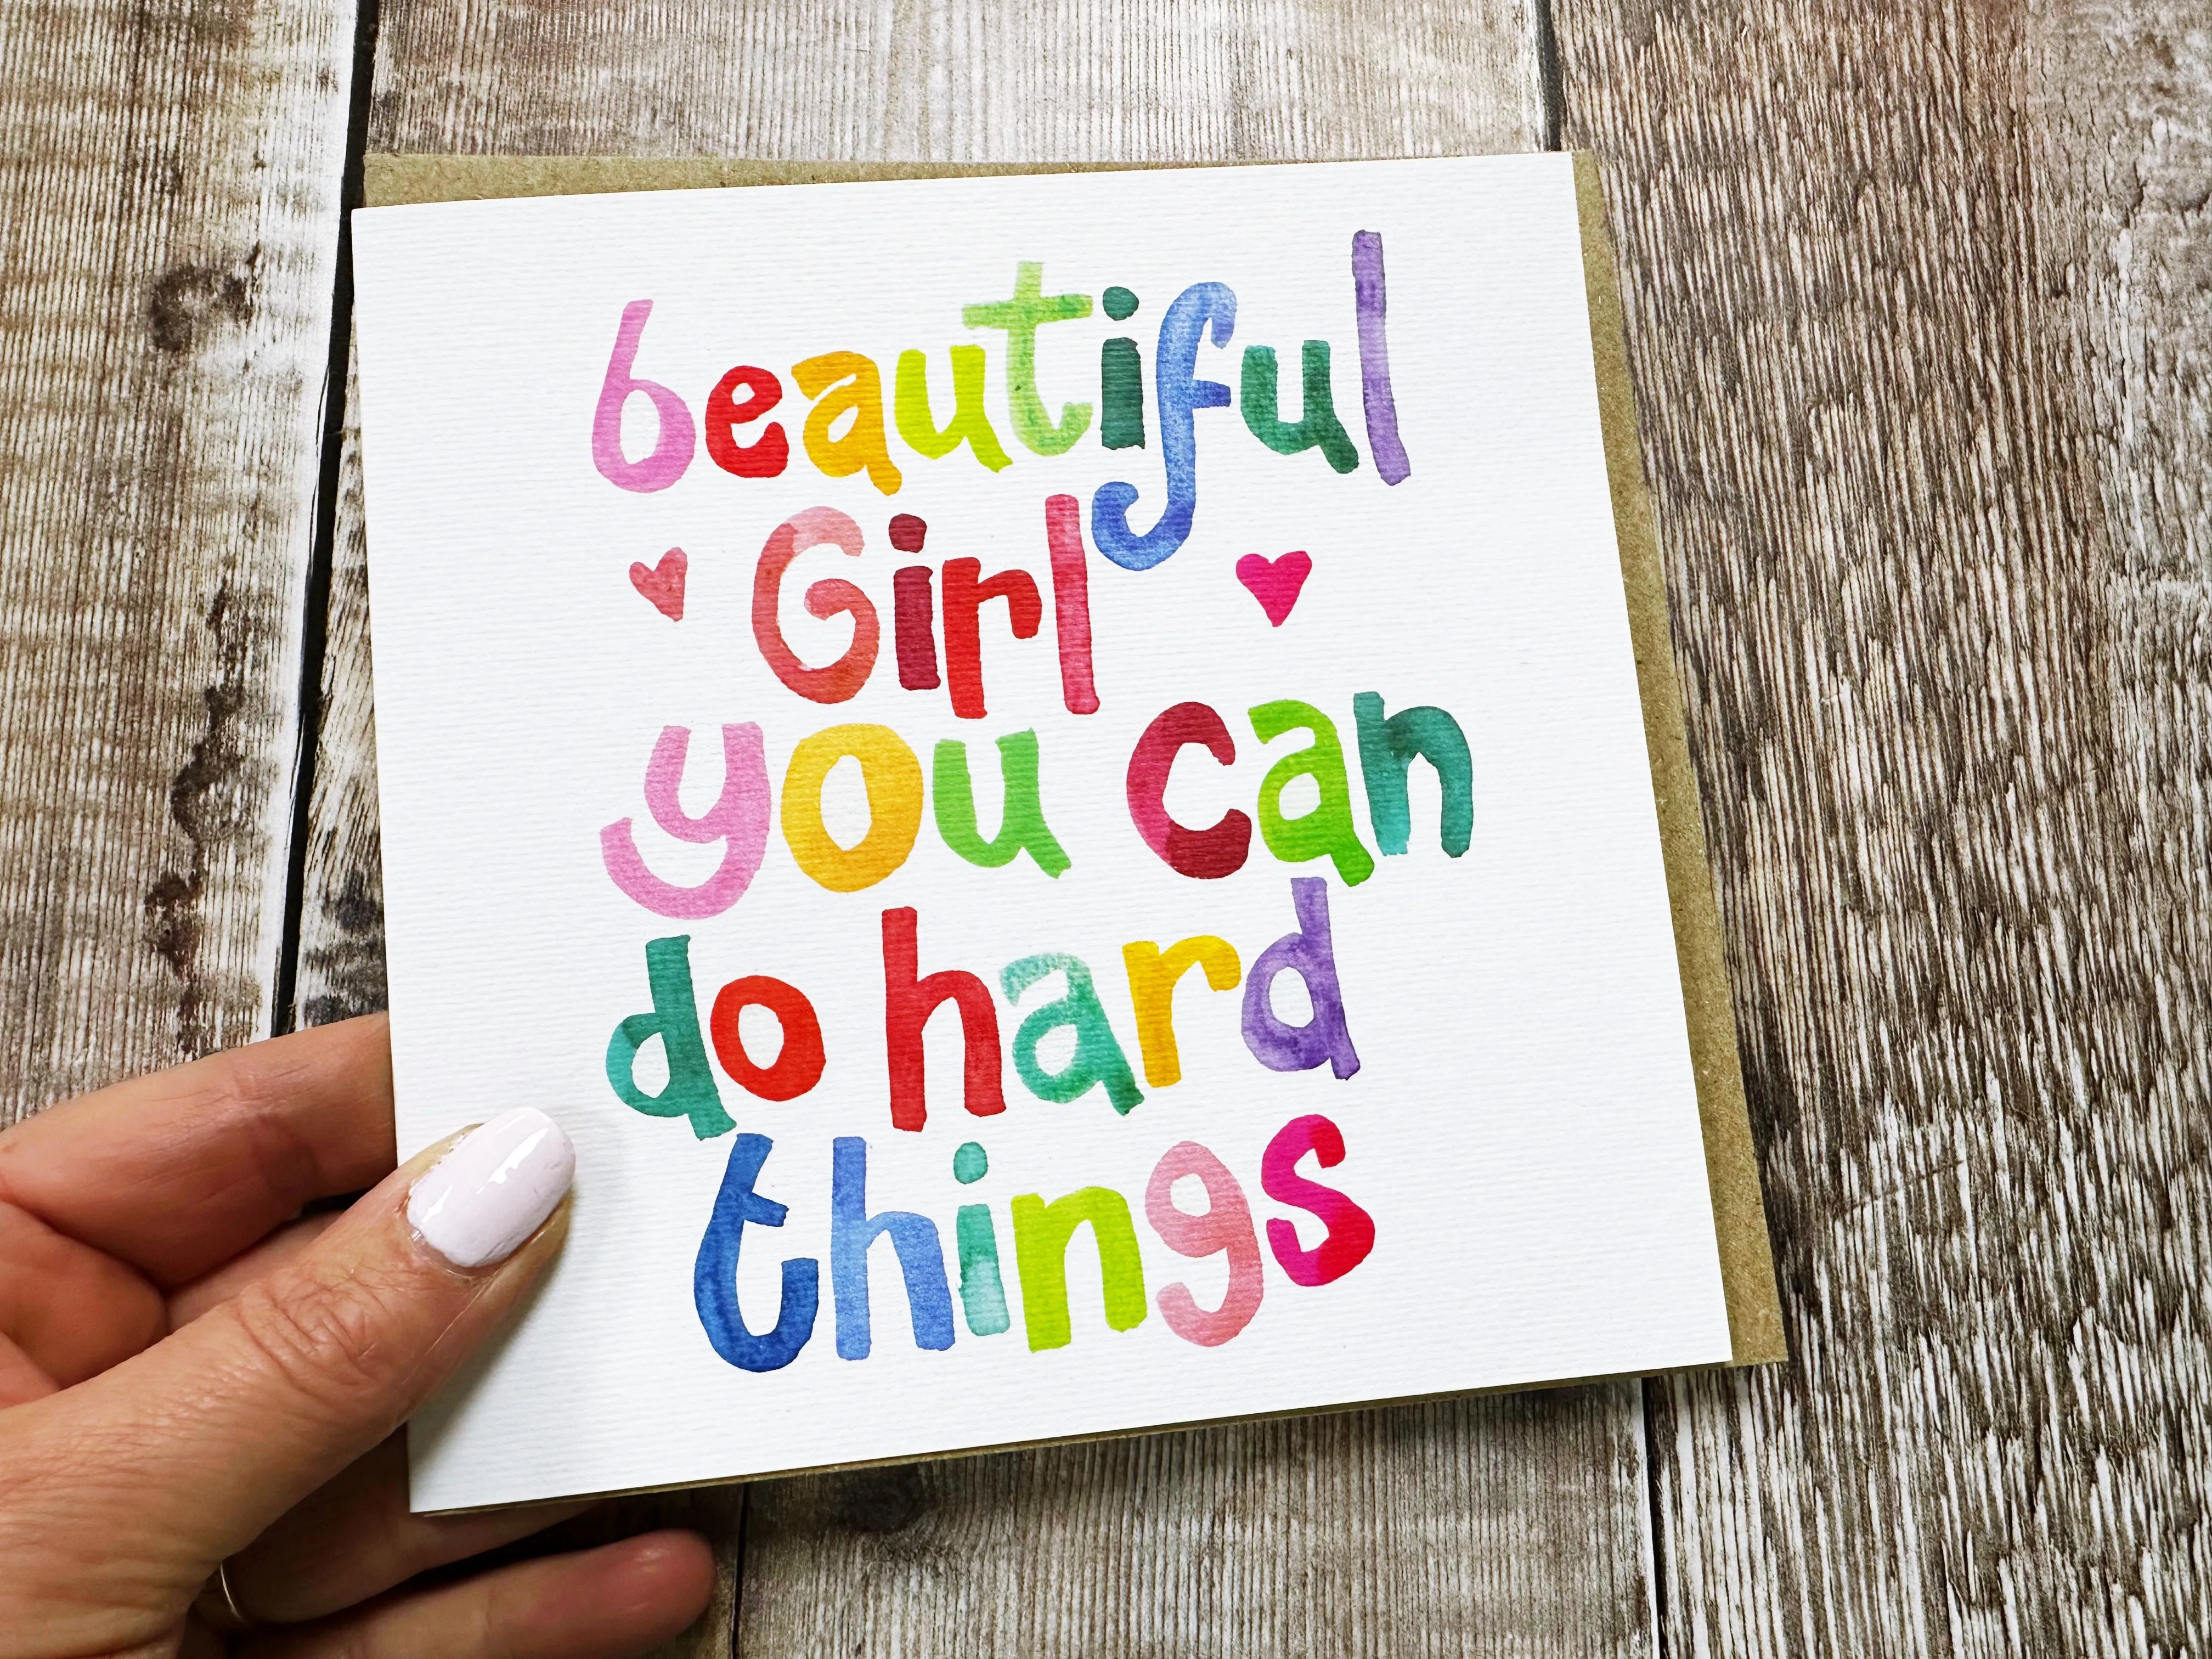 beautiful
Girl
you can
do hard
things